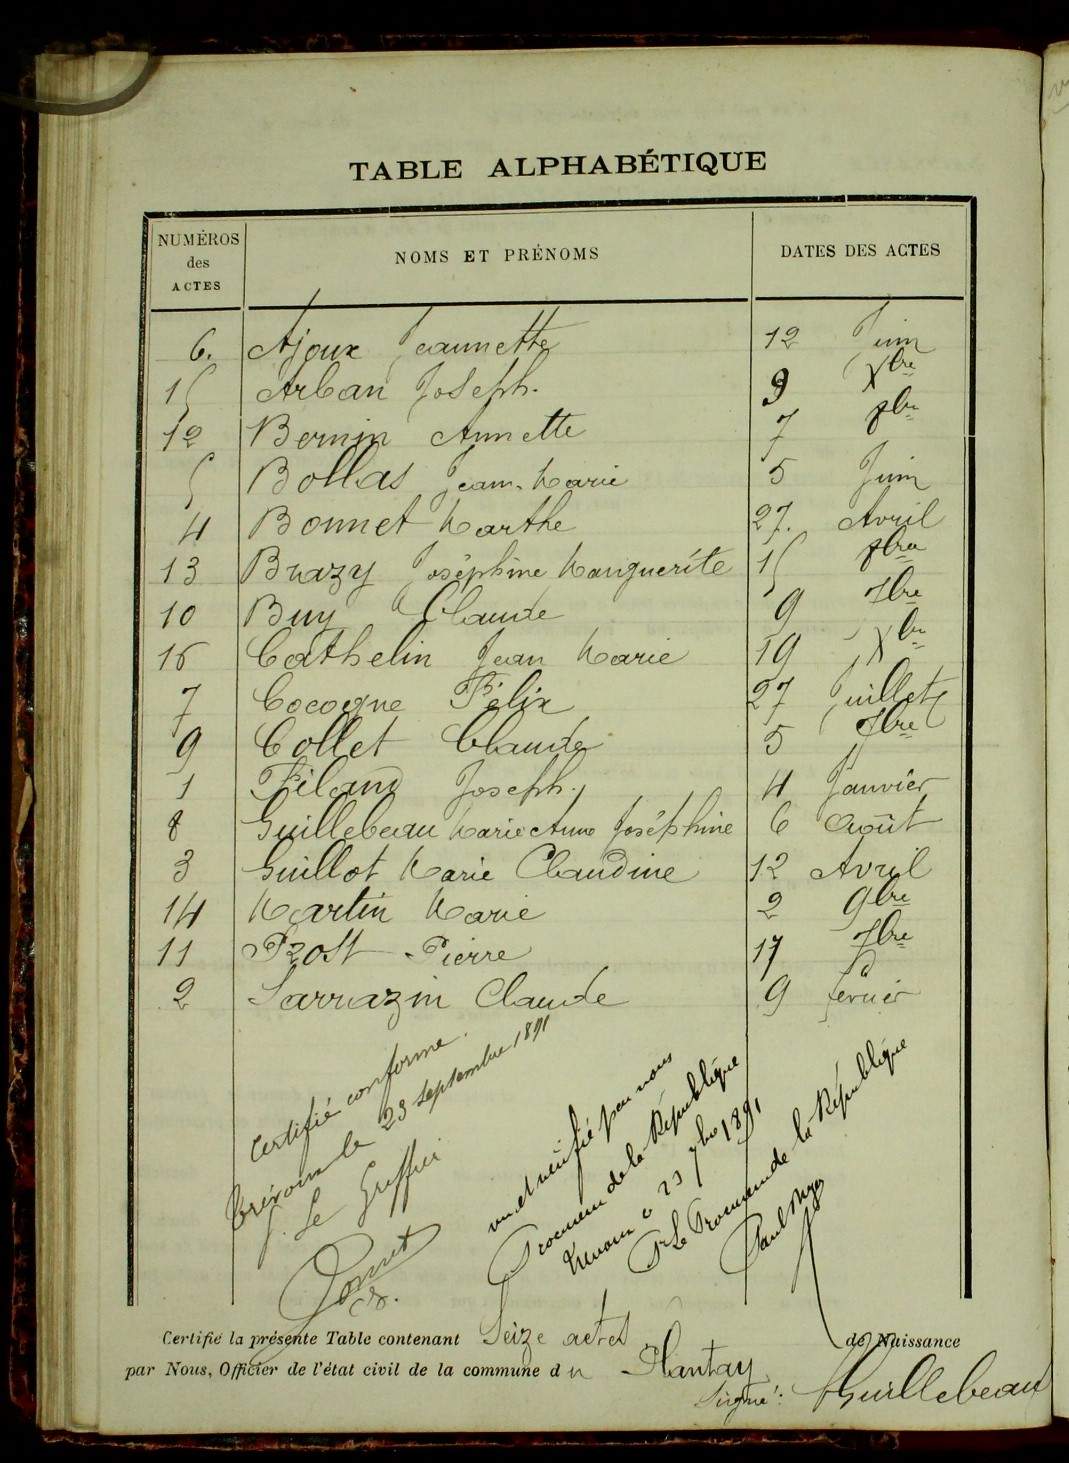 TABLE ALPHABÉTIQUE
NUMÉROS des ACTES NOMS ET PRÉNOMS DATES DES ACTES
6. Ajoux Jeannette 12 Juin
15 Arban Joseph. 9 Xbre
12 Bernin Annette 7 8bre
5 Bollas Jean-Marie 5 Juin
4 Bonnet Marthe 27. Avril
13 Brazy Joséphine Marguerite 15 8bre
10 Buy Claude 9 7bre
16 Cathelin Jean Marie 19 Xbre
7 Cocogne Félix 27 Juillet
9 Collet Claude 5 7bre
1 Filand Joseph. 4 Janvier
8 Guillebeau Marie Anne Joséphine 6 Août
3 Guillot Marie Claudine 12 Avril
14 Martin Marie 2 9bre
11 Prost Pierre 17 7bre
2 Sarrazin Claude 9 Février
Certifié conforme.
Trévoux le 23 septembre 1891
Le Greffier
vu et vérifié par nous
Procureur de la République
Trévoux le 23 7bre 1891
Pr Le Procureur de la République
Certifié la présente Table contenant Seize actes de Naissance
par Nous, Officier de l'état civil de la commune du Plantay
Signé: Guillebeau